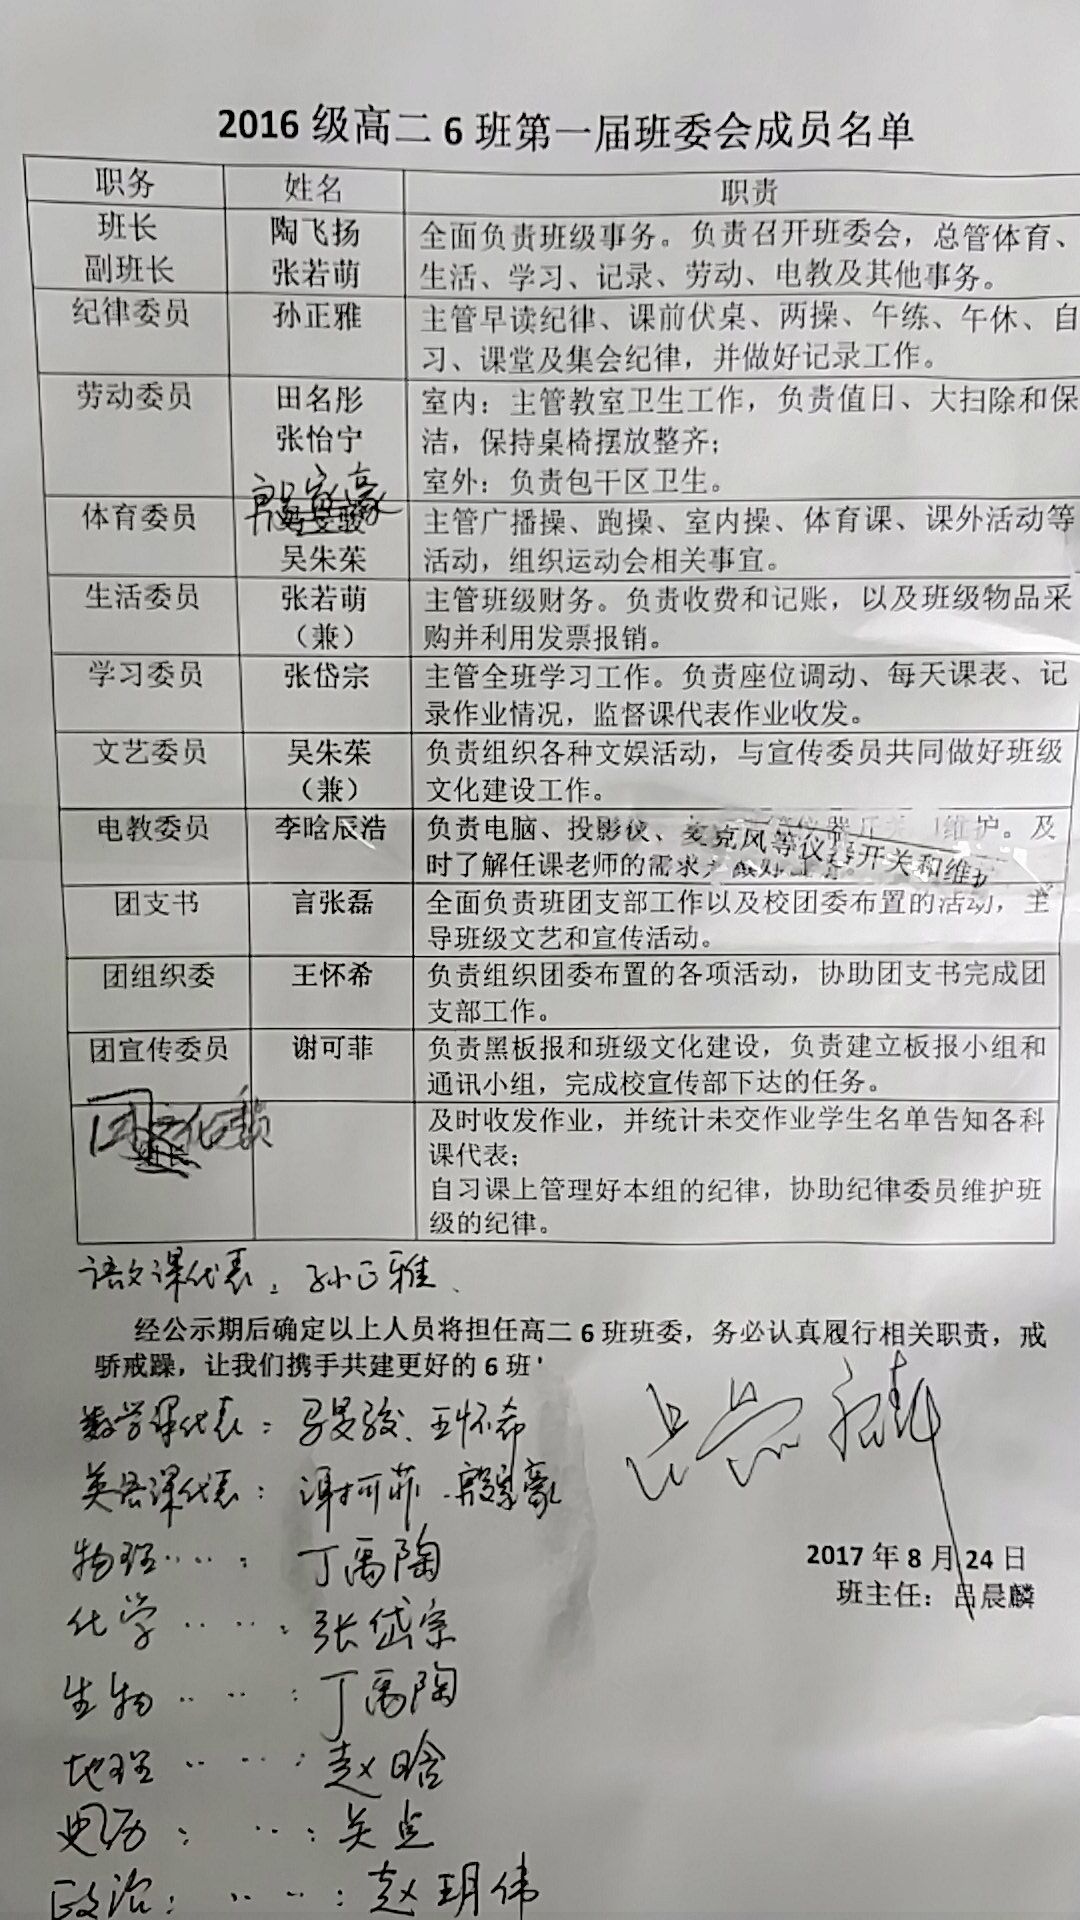 2016 级高二 6 班第一届班委会成员名单
职务 姓名 职责
班长 陶飞扬 全面负责班级事务。负责召开班委会，总管体育、
副班长 张若萌 生活、学习、记录、劳动、电教及其他事务。
纪律委员 孙正雅 主管早读纪律、课前伏桌、两操、午练、午休、自
习、课堂及集会纪律，并做好记录工作。
劳动委员 田名彤 室内：主管教室卫生工作，负责值日、大扫除和保
张怡宁 洁，保持桌椅摆放整齐；
室外：负责包干区卫生。
殷家豪
体育委员 主管广播操、跑操、室内操、体育课、课外活动等
吴朱茱 活动，组织运动会相关事宜。
生活委员 张若萌 主管班级财务。负责收费和记账，以及班级物品采
（兼） 购并利用发票报销。
学习委员 张岱宗 主管全班学习工作。负责座位调动、每天课表、记
录作业情况，监督课代表作业收发。
文艺委员 吴朱茱 负责组织各种文娱活动，与宣传委员共同做好班级
（兼） 文化建设工作。
电教委员 李晗辰浩 负责电脑、投影仪、麦克风等仪器开关和维护。及
时了解任课老师的需求
团支书 言张磊 全面负责班团支部工作以及校团委布置的活动，主
导班级文艺和宣传活动。
团组织委 王怀希 负责组织团委布置的各项活动，协助团支书完成团
支部工作。
团宣传委员 谢可菲 负责黑板报和班级文化建设，负责建立板报小组和
通讯小组，完成校宣传部下达的任务。
及时收发作业，并统计未交作业学生名单告知各科
课代表；
自习课上管理好本组的纪律，协助纪律委员维护班
级的纪律。
语文课代表：孙正雅、
经公示期后确定以上人员将担任高二 6 班班委，务必认真履行相关职责，戒
骄戒躁，让我们携手共建更好的 6 班
数学课代表：马旻骏、王怀希
英语课代表：谢可菲、殷家豪
物理……：丁禹陶
2017 年 8 月 24 日
班主任：吕晨麟
化学……：张岱宗
生物……：丁禹陶
地理……：赵晗
历：……：吴点
政治：……：赵玥伟